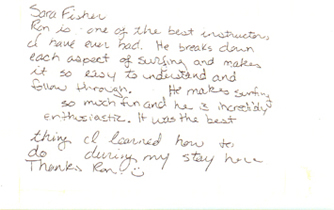 Sara Fisher
Ron is one of the best instructors
I have ever had. He breaks down
each aspect of surfing and makes
it so easy to understand and
follow through. He makes surfing
so much fun and he is incredibly
enthusiastic. It was the best
thing I learned how to
do during my stay here
Thanks Ron! ☺